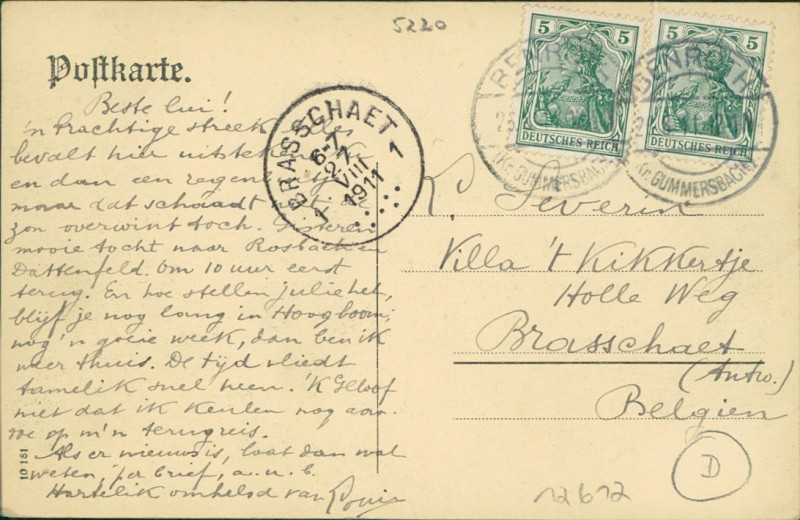 5220
5 5
5 5
DEUTSCHES REICH
DEUTSCHES REICH
(Kr. GUMMERSBACH)
(Kr. GUMMERSBACH)
Postkarte.
BRASSCHAET
1 1
6-7
27
VIII
1911
Beste lui!
'n Prachtige streek
bevalt hier
en dan een regen
maar dat schaadt
zon overwint toch. Gisteren
mooie tocht naar Rosbach en
Dattenfeld. Om 10 uur eerst
terug. En hoe stellen jullie het,
blijf je nog lang in Hoogboom;
nog 'n goeie week, dan ben ik
weer thuis. De tijd vliedt
tamelik snel heen. 'K Geloof
niet dat ik Keulen nog aan-
roe op m'n terugreis.
Als er nieuws is, laat dan wat
weten, 'per brief, a.u.b.
Hartelik omhelsd van Louis
Severin
Villa 't Kikkertje
Holle Weg
Brasschaet
(Antw.)
Belgien
D
12612
10 181